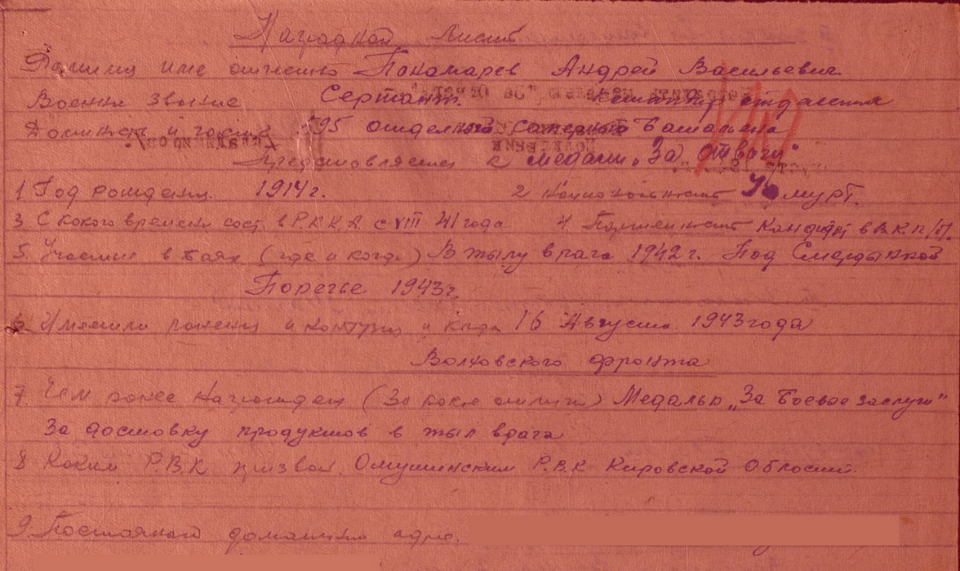 Наградной Лист
Фамилия име отчество Понамарев Андрей Васильевич
Военн звание Сержант. отделения
595 отделный Саперный Баталион
Предстовляется к медали „За Отвагу"
1 Год рождения 1914 г. 2 Национольност Удмурт.
3 С какого времени сост. в Р.К.К.А. с VIII 41 года 4 Партийност Кандидат в В.К.П./б/.
5. Участие в боях (где и когда) В тылу врага 1942 г. Под Смердынкой
Поречье 1943 г.
6. Имеет ли ранения и контузии и когда 16 Августа 1943 года
Волховского фронта
7. Чем ранее Награжден (За какие отличия) Медалью „За Боевые заслуги"
За достовку продуктов в тыл врага
8 Каким Р.В.К призван. Омутнинским Р.В.К Кировской Области.
9. Постоянный домашний адрес.